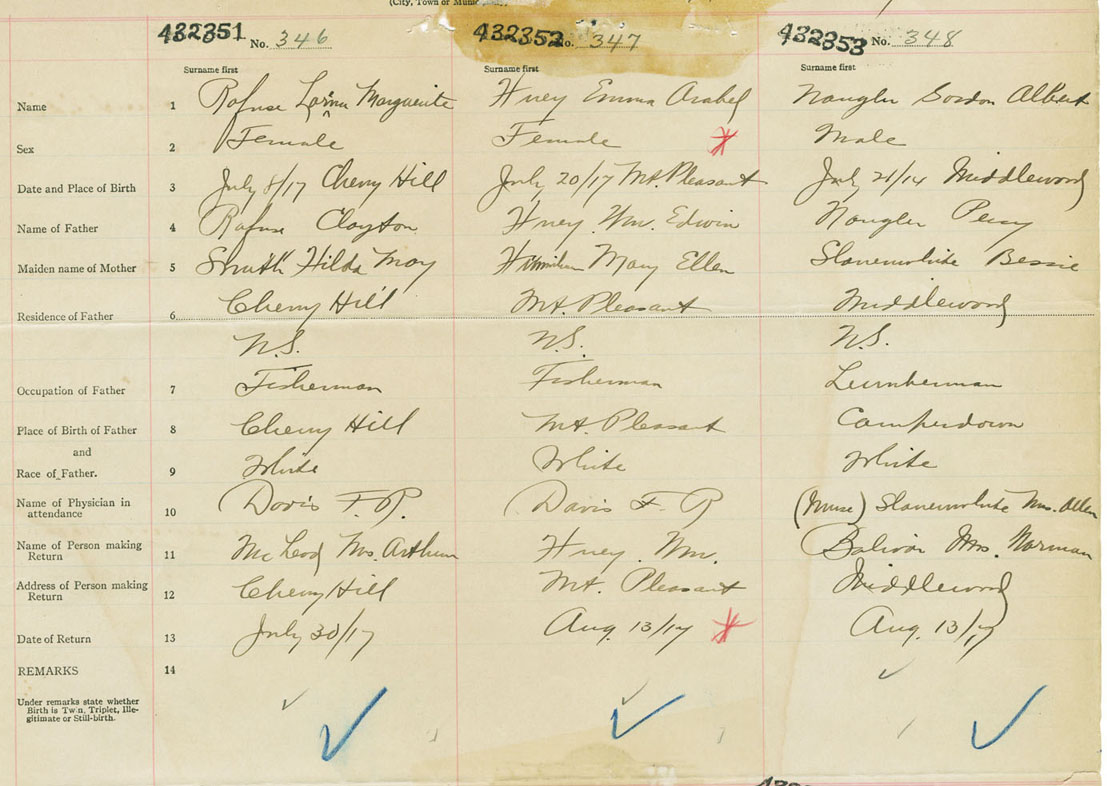 (City, Town or Munic
432351 No. 346 432352 No. 347 432353 No. 348
Surname first Surname first Surname first
Name 1 Rafuse Lorna Marguerite Huey Emma Arabel Naugler Gordon Albert
Sex 2 Female Female Male
Date and Place of Birth 3 July 8/17 Cherry Hill July 20/17 Mt. Pleasant July 21/17 Middlewood
Name of Father 4 Rafuse Clayton Huey Wm. Edwin Naugler Percy
Maiden name of Mother 5 Smith Hilda May Mary Ellen Slauenwhite Bessie
Residence of Father 6 Cherry Hill Mt. Pleasant Middlewood
N.S. N.S. N.S.
Occupation of Father 7 Fisherman Fisherman Lumberman
Place of Birth of Father 8 Cherry Hill Mt. Pleasant Camperdown
and
Race of Father. 9 White White White
Name of Physician in
attendance 10 Davis F. R. Davis F R (Nurse) Slauenwhite Mrs. Allen
Name of Person making
Return 11 McLeod Mrs. Arthur Huey Wm. Bolivar Mrs. Norman
Address of Person making
Return 12 Cherry Hill Mt. Pleasant Middlewood
Date of Return 13 July 30/17 Aug. 13/17 Aug. 13/17
REMARKS 14
Under remarks state whether
Birth is Twin, Triplet, Ille-
gitimate or Still-birth.